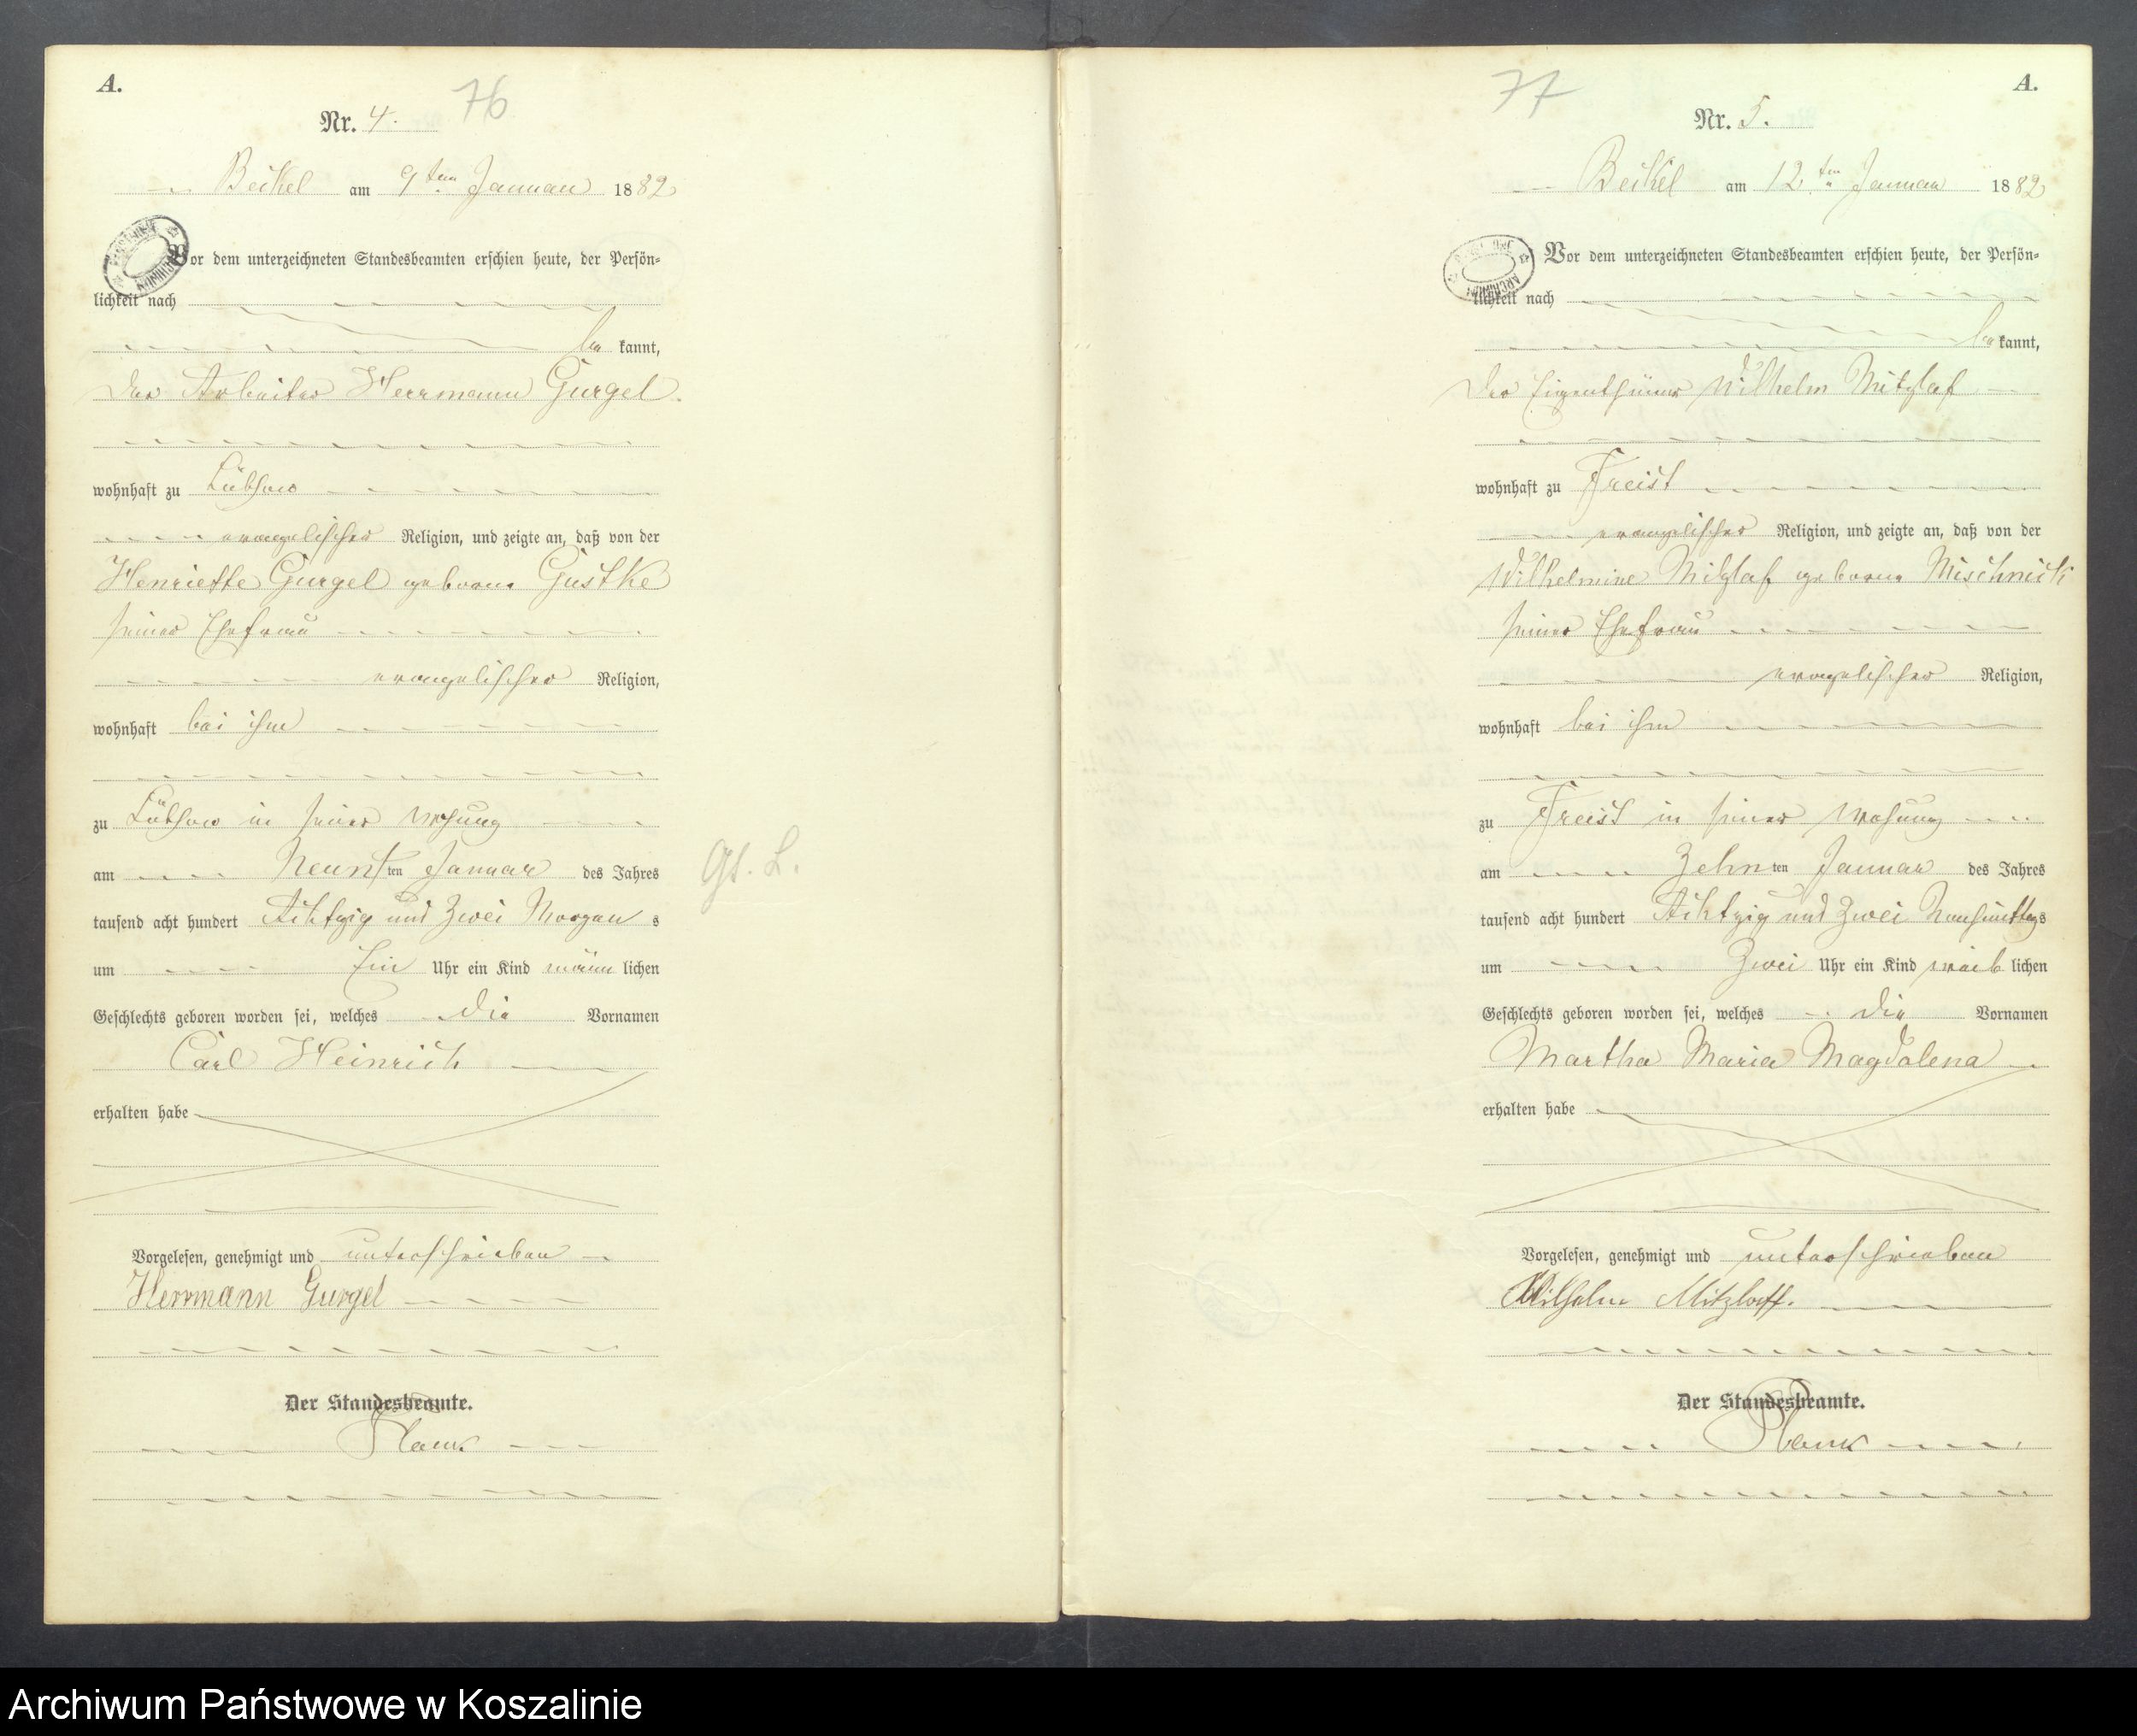 A.
76
Nr. 4.
Beckel am 9ten Januar 1882
Vor dem unterzeichneten Standesbeamten erschien heute, der Persön-
lichkeit nach
be kannt,
der Arbeiter Herrmann Gurgel.
wohnhaft zu Lübzow
evangelischer Religion, und zeigte an, daß von der
Henriette Gurgel geborne Gustke
seiner Ehefrau
evangelischer Religion,
wohnhaft bei ihm
zu Lübzow in seiner Wohung
am Neunten Januar des Jahres
tausend acht hundert Achtzig und Zwei Morgens
um Ein Uhr ein Kind männlichen
Geschlechts geboren worden sei, welches die Vornamen
Carl Heinrich
erhalten habe
Vorgelesen, genehmigt und unterschrieben
Herrmann Gurgel
Der Standesbeamte.
Gs. L.
77
A.
Nr. 5.
Beckel am 12ten Januar 1882
Vor dem unterzeichneten Standesbeamten erschien heute, der Persön-
lichkeit nach
be kannt,
der Eigenthümer Wilhelm Mitzlaf
wohnhaft zu Freist
evangelischer Religion, und zeigte an, daß von der
Wilhelmine Mitzlaf geborne Mischnick
seiner Ehefrau
evangelischer Religion,
wohnhaft bei ihm
zu Freist in seiner Wohung
am Zehnten Januar des Jahres
tausend acht hundert Achtzig und Zwei Nachmittags
um Zwei Uhr ein Kind weiblichen
Geschlechts geboren worden sei, welches die Vornamen
Martha Maria Magdalena
erhalten habe
Vorgelesen, genehmigt und unterschrieben
Wilhelm Mitzlaff.
Der Standesbeamte.
Archiwum Państwowe w Koszalinie